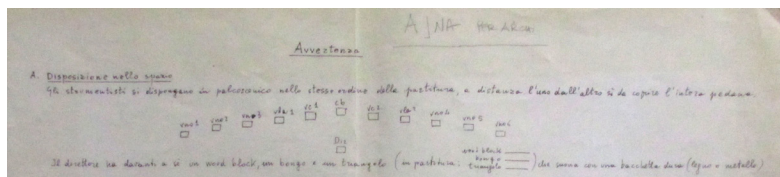 AJNA
Avvertenza
A. Disposizione nello spazio
Gli strumentisti si dispongano in palcoscenico nello stesso ordine della partitura, a distanza l'uno dall'altro sì da coprire l'intera pedana.
vno1 vno2 vno3 vla1 vc1 cb vc2 vla2 vno4 vno5 vno6
Dir
Il direttore ha davanti a sé un wood block, un bongo e un triangolo (in partitura: wood block bongo triangolo) che suona con una bacchetta dura (legno o metallo)